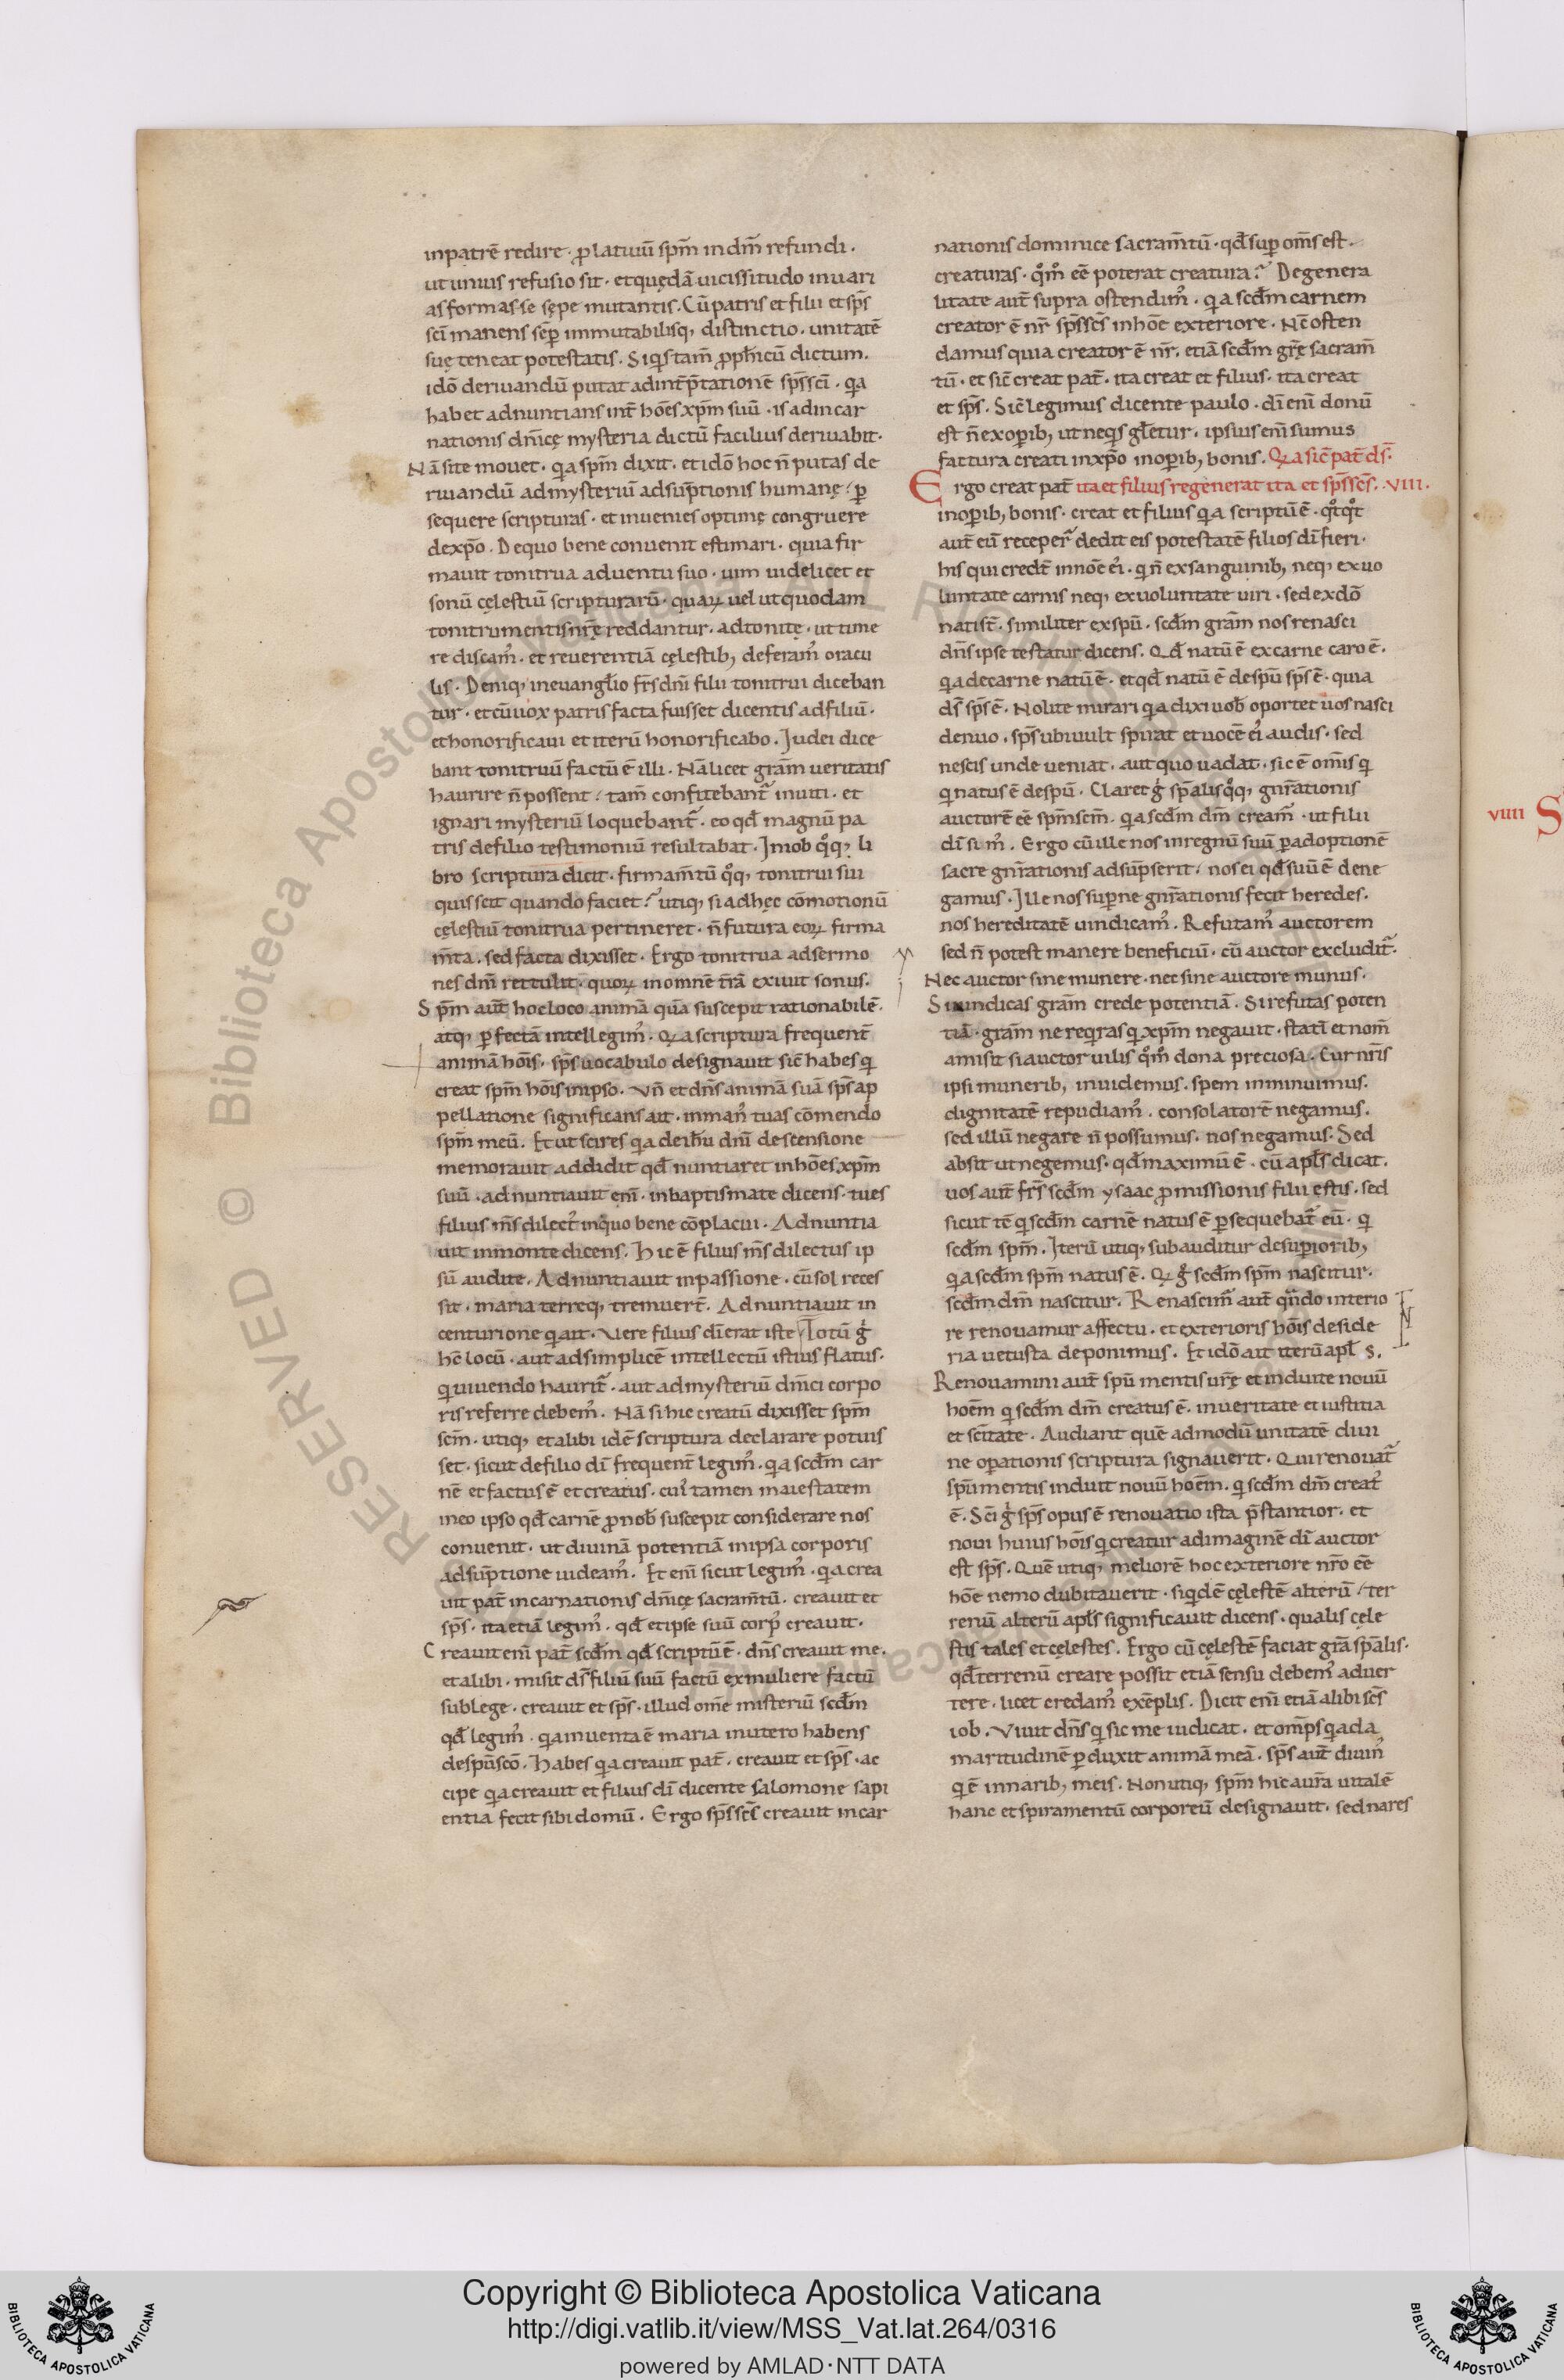 inpatrē redire · ꝓlatiuū sp̄m in dm̄ refundi ·
ut unius refusio sit · et quędā uicissitudo in uari
as formas se sępe mutantis · Cū patris et filii et sp̄s
sc̄i manens sēp immutabilisq; distinctio · unitatē
suę teneat potestatis · Siq̇s tam̄ ꝓph̄icū dictum ·
idō deriuandū putat ad int̄p̄tationē sp̄s sc̄i · qa
habet adnuntians int̄ hōēs xp̄m suū · is ad incar
nationis dn̄icę mysteria dictū facilius deriuabit ·
Nā si te mouet · qa sp̄m dixit · et idō hoc n̄ putas de
riuandū ad mysteriū adsūptionis humanę · ꝑ
sequere scripturas · et inuenies optime congruere
de xp̄o · De quo bene conuenit estimari · quia fir
mauit tonitrua aduentu suo · uim uidelicet et
sonū cęlestiū scripturarū · quaꝝ uelut quodam
tonitru mentis nr̄ę reddantur · adtonitę · ut time
re discam᷒ · et reuerentiā cęlestib; deferam᷒ oracu
lis · Deniq; in euanglio fr̄s dn̄i filii tonitrui diceban
tur · et cū uox patris facta fuisset dicentis ad filiū ·
et honorificaui et iterū honorificabo · Judei dice
bant tonitruū factū ē illi · Nā licet grām ueritatis
haurire n̄ possent · tam̄ confitebant᷑ inuiti · et
ignari mysteriū loquebant᷑ · eo qđ magnū pa
tris de filio testimoniū resultabat · Jn iob qͦq; li
bro scriptura dicit · firmam̄tū qͦq; tonitrui sui
quis scit quando faciet? utiq; si ad hęc cōmotionū
cęlestiū tonitrua pertineret · n̄ futura eoꝝ firma
m̄ta · sed facta dixisset · Ergo tonitrua ad sermo
nes dn̄i rettulit · quoꝝ in omnē t̄rā exiuit sonus ·
Sp̄m aut̄ hoc loco animā quā suscepit rationabilē ·
atq; ꝑfectā intellegim᷒ · Qa scriptura frequent̄
animā hōis · sp̄s uocabulo designauit sic̄ habes qi
creat sp̄m hōis in ipso · Vn̄ et dn̄s animā suā sp̄s ap
pellatione significans ait · in man᷒ tuas cōmendo
sp̄m meū · Et ut scires qa de ih̄u dn̄i descensione
memorauit addidit qđ nuntiaret in hōēs xp̄m
suū · adnuntiauit eni̅ · in baptismate dicens · tu es
filius m̄s dilect᷒ in quo bene cōplacui · Adnuntia
uit in monte dicens · Hic ē filius m̄s dilectus ip
sū audite · Adnuntiauit in passione · cū sol reces
sit · maria terreq; tremuer̄t · Adnuntiauit in
centurione qi ait · Vere filius di̅ erat iste Totū ġ
hc̄ locū · aut ad simplicē intellectū istius flatus ·
qi uiuendo haurit᷑ · aut ad mysteriū dn̄ici corpo
ris referre debem᷒ · Nā si hic creatū dixisset sp̄m
scm̄ · utiq; et alibi idē scriptura declarare potuis
set · sicut de filio di̅ frequent̄ legim᷒ · qa scđm car
nē et factus ē et creatus · cui᷒ tamen maiestatem
in eo ipso qđ carnē ꝓ nob̄ suscepit considerare nos
conuenit · ut diuinā potentiā in ipsa corporis
adsūptione uideam᷒ · Et eni̅ sicut legim᷒ · qa crea
uit pat̄ incarnationis dn̄icę sacram̄tū · creauit et
sp̄s · ita etiā legim᷒ · qđ et ipse suū corp᷒ creauit ·
Creauit eni̅ pat̄ scđm qđ scriptū ē · dn̄s creauit me ·
et alibi · misit ds̄ filiū suū factū ex muliere factū
sub lege · creauit et sp̄s · illud om̄e misteriū scđm
qđ legim᷒ · qa inuenta ē maria in utero habens
de spū scō · Habes qa creauit pat̄ · creauit et sp̄s · ac
cipe qa creauit et filius di̅ dicente salomone sapi
entia fecit sibi domū · Ergo sp̄s sc̄s creauit incar
nationis dominice sacram̄tū · qđ suꝑ om̄s est ·
creaturas · qͦm᷒ eē poterat creatura? De genera
litate aut̄ supra ostendim᷒ · qa scđm carnem
creator ē nr̄ sp̄s sc̄s in hōe exteriore · Nc̄ osten
damus quia creator ē nr̄ · etiā scđm gr̄ę sacram̄
tū · et sic̄ creat pat̄ · ita creat et filius · ita creat
et sp̄s · Sic̄ legimus dicente paulo · di̅ eni̅ donū
est n̄ ex oꝑib; ut neq̇s gl̄etur · ipsius eni̅ sumus
factura creati in xp̄o in oꝑib; bonis · Qa sic̄ pat̄ ds̄ ·
Ergo creat pat̄ ita et filius regenerat ita et sp̄s sc̄s · VIII ·
in oꝑib; bonis · creat et filius qa scriptū ē · qͦtqͦt
aut̄ eū receper᷑ dedit eis potestatē filios di̅ fieri ·
his qui credt̄ in nōe ei᷒ · qi n̄ ex sanguinib; neq; ex uo
luntate carnis neq; ex uoluntate uiri · sed ex dō
nati st̄ · similiter ex spū · scđm grām nos renasci
dn̄s ipse testatur dicens · Qđ natū ē ex carne caro ē ·
qa de carne natū ē · et qđ natū ē de spū sp̄s ē · quia
ds̄ sp̄s ē · Nolite mirari qa dixi uob̄ oportet uos nasci
denuo · sp̄s ubi uult spirat et uocē ei᷒ audis · sed
nescis unde ueniat · aut quo uadat · sic ē om̄is qi
qi natus ē de spū · Claret ġ sp̄alis qͦq; gnr̄ationis
auctorē eē sp̄m scm̄ · qa scđm dm̄ cream᷑ · ut filii
di̅ sim᷒ · Ergo cū ille nos in regnū suū ꝑ adoptionē
sacre gnr̄ationis adsūpserit · nos ei qđ suū ē dene
gamus · Ille nos suꝑne gnr̄ationis fecit heredes ·
nos hereditatē uindicam᷒ · Refutam᷒ auctorem
sed n̄ potest manere beneficiū · cū auctor excludit᷑ ·
Nec auctor sine munere · nec sine auctore munus ·
Si uindicas grām crede potentiā · Si refutas poten
tiā · grām ne reqiras qi xp̄m negauit · stati̅ et nom̄
amisit si auctor uilis qͦm᷒ dona preciosa · Cur nr̄is
ipsi munerib; inuidemus · spem inminuimus ·
dignitatē repudiam᷒ · consolatorē negamus ·
sed illū negare n̄ possumus · nos negamus · Sed
absit ut negemus · qđ maximū ē · cū apl̄s dicat ·
uos aut̄ fr̄s scđm ysaac ꝓmissionis filii estis · sed
sicut tc̄ qi scđm carnē natus ē ꝑsequebat᷑ eū · qi
scđm sp̄m · Iterū utiq; subauditur de suꝑiorib;
qa scđm sp̄m natus ē · Qi ġ scđm sp̄m nascitur ·
scđm dm̄ nascitur · Renascim᷑ aut̄ qn̄do interio
re renouamur affectu · et exterioris hōis deside
ria uetusta deponimus · Et idō ait iterū apl̄s ·
Renouamini aut̄ spū mentis ur̄ę et induite nouū
hoēm qi scđm dm̄ creatus ē · in ueritate et iustitia
et sc̄itate · Audiant quē admodū unitatē diui
ne oꝑationis scriptura signauerit · Qui renouat᷑
spū mentis induit nouū hoēm · qi scđm dm̄ creat᷒
ē · Sc̄i ġ sp̄s opus ē renouatio ista p̄stantior · et
noui huius hōis qi creatur ad imaginē di̅ auctor
est sp̄s · Quē utiq; meliorē hoc exteriore nr̄o eē
hōe nemo dubitauerit · siqdē cęlestē alterū · ter
renū alterū apl̄s significauit dicens · qualis cęle
stis tales et cęlestes · Ergo cū cęlestē faciat grā sp̄alis ·
qđ terrenū creare possit etiā sensu debem᷒ aduer
tere · licet credam᷒ exēplis · Dicit eni̅ etiā alibi sc̄s
iob · Viuit dn̄s qi sic me iudicat · et om̄ps qi ad a
maritudinē ꝑduxit animā meā · sp̄s aut̄ diuin᷒
qi ē in narib; meis · Non utiq; sp̄m hic aurā uitalē
hanc et spiramentū corporeū designauit · sed nares
VIIII S
Copyright © Biblioteca Apostolica Vaticana
http://digi.vatlib.it/view/MSS_Vat.lat.264/0316
powered by AMLAD·NTT DATA
BIBLIOTECA APOSTOLICA VATICANA
BIBLIOTECA APOSTOLICA VATICANA